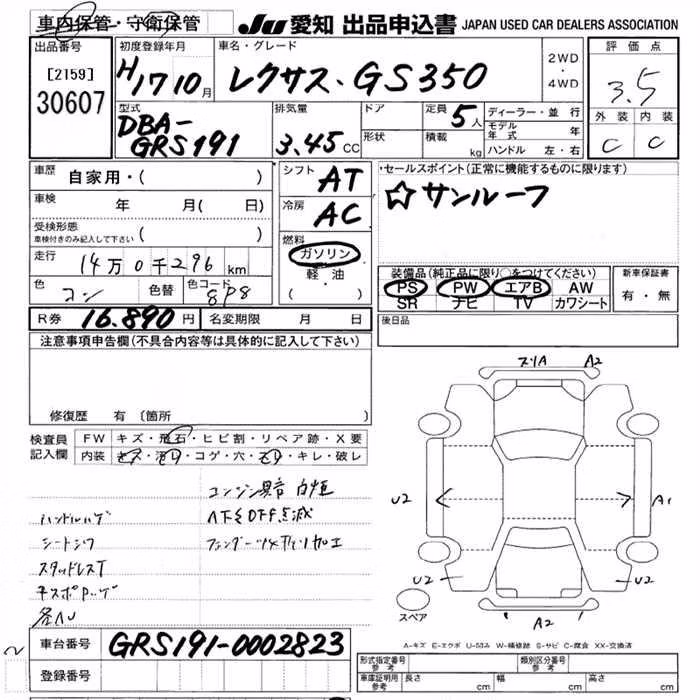 車内保管・守衛保管
JU 愛知 出品申込書 JAPAN USED CAR DEALERS ASSOCIATION
出品番号 初度登録年月 車名・グレード 評価点
[2159]
30607
H17 10月
レクサス・GS350
2WD・4WD
3.5
型式 排気量 ドア 定員 5人 ディーラー・並行 外装 内装
DBA-
GRS191
3.45CC
形状 積載 kg
モデル年式 年
ハンドル 左・右
C C
車歴 自家用・( )
シフト AT
セールスポイント(正常に機能するものに限ります)
☆サンルーフ
車検 年 月( 日)
冷房 AC
受検形態
車検付きのみ記入して下さい ( )
燃料
ガソリン
軽・油
・( )
走行 14万0千296km
装備品(純正品に限り○をつけてください) 新車保証書
PS PW エアB AW
SR ナビ TV カワシート
有・無
色 コン 色替 色コード 8P8
R券 16.890円 名変期限 月 日
後日品
注意事項申告欄(不具合内容等は具体的に記入して下さい)
修復歴 有 〔箇所
検査員
記入欄
FW キズ・飛石・ヒビ割・リペア跡・X要
内装 キズ・汚れ・コゲ・穴・スレ・キレ・破レ
ハンドルハゲ
シートシワ
スタッドレスT
各AU
ズリA A2
U2 A1
U2 U2
A2
スペア
A-キズ E-エクボ U-凹み W-補修跡 S-サビ C-腐食 XX-交換済
車台番号 GRS191-0002823
登録番号
形式指定番号 参考 類別区分番号 参考
車庫証明用 参考 長さ cm 幅 cm 高さ cm